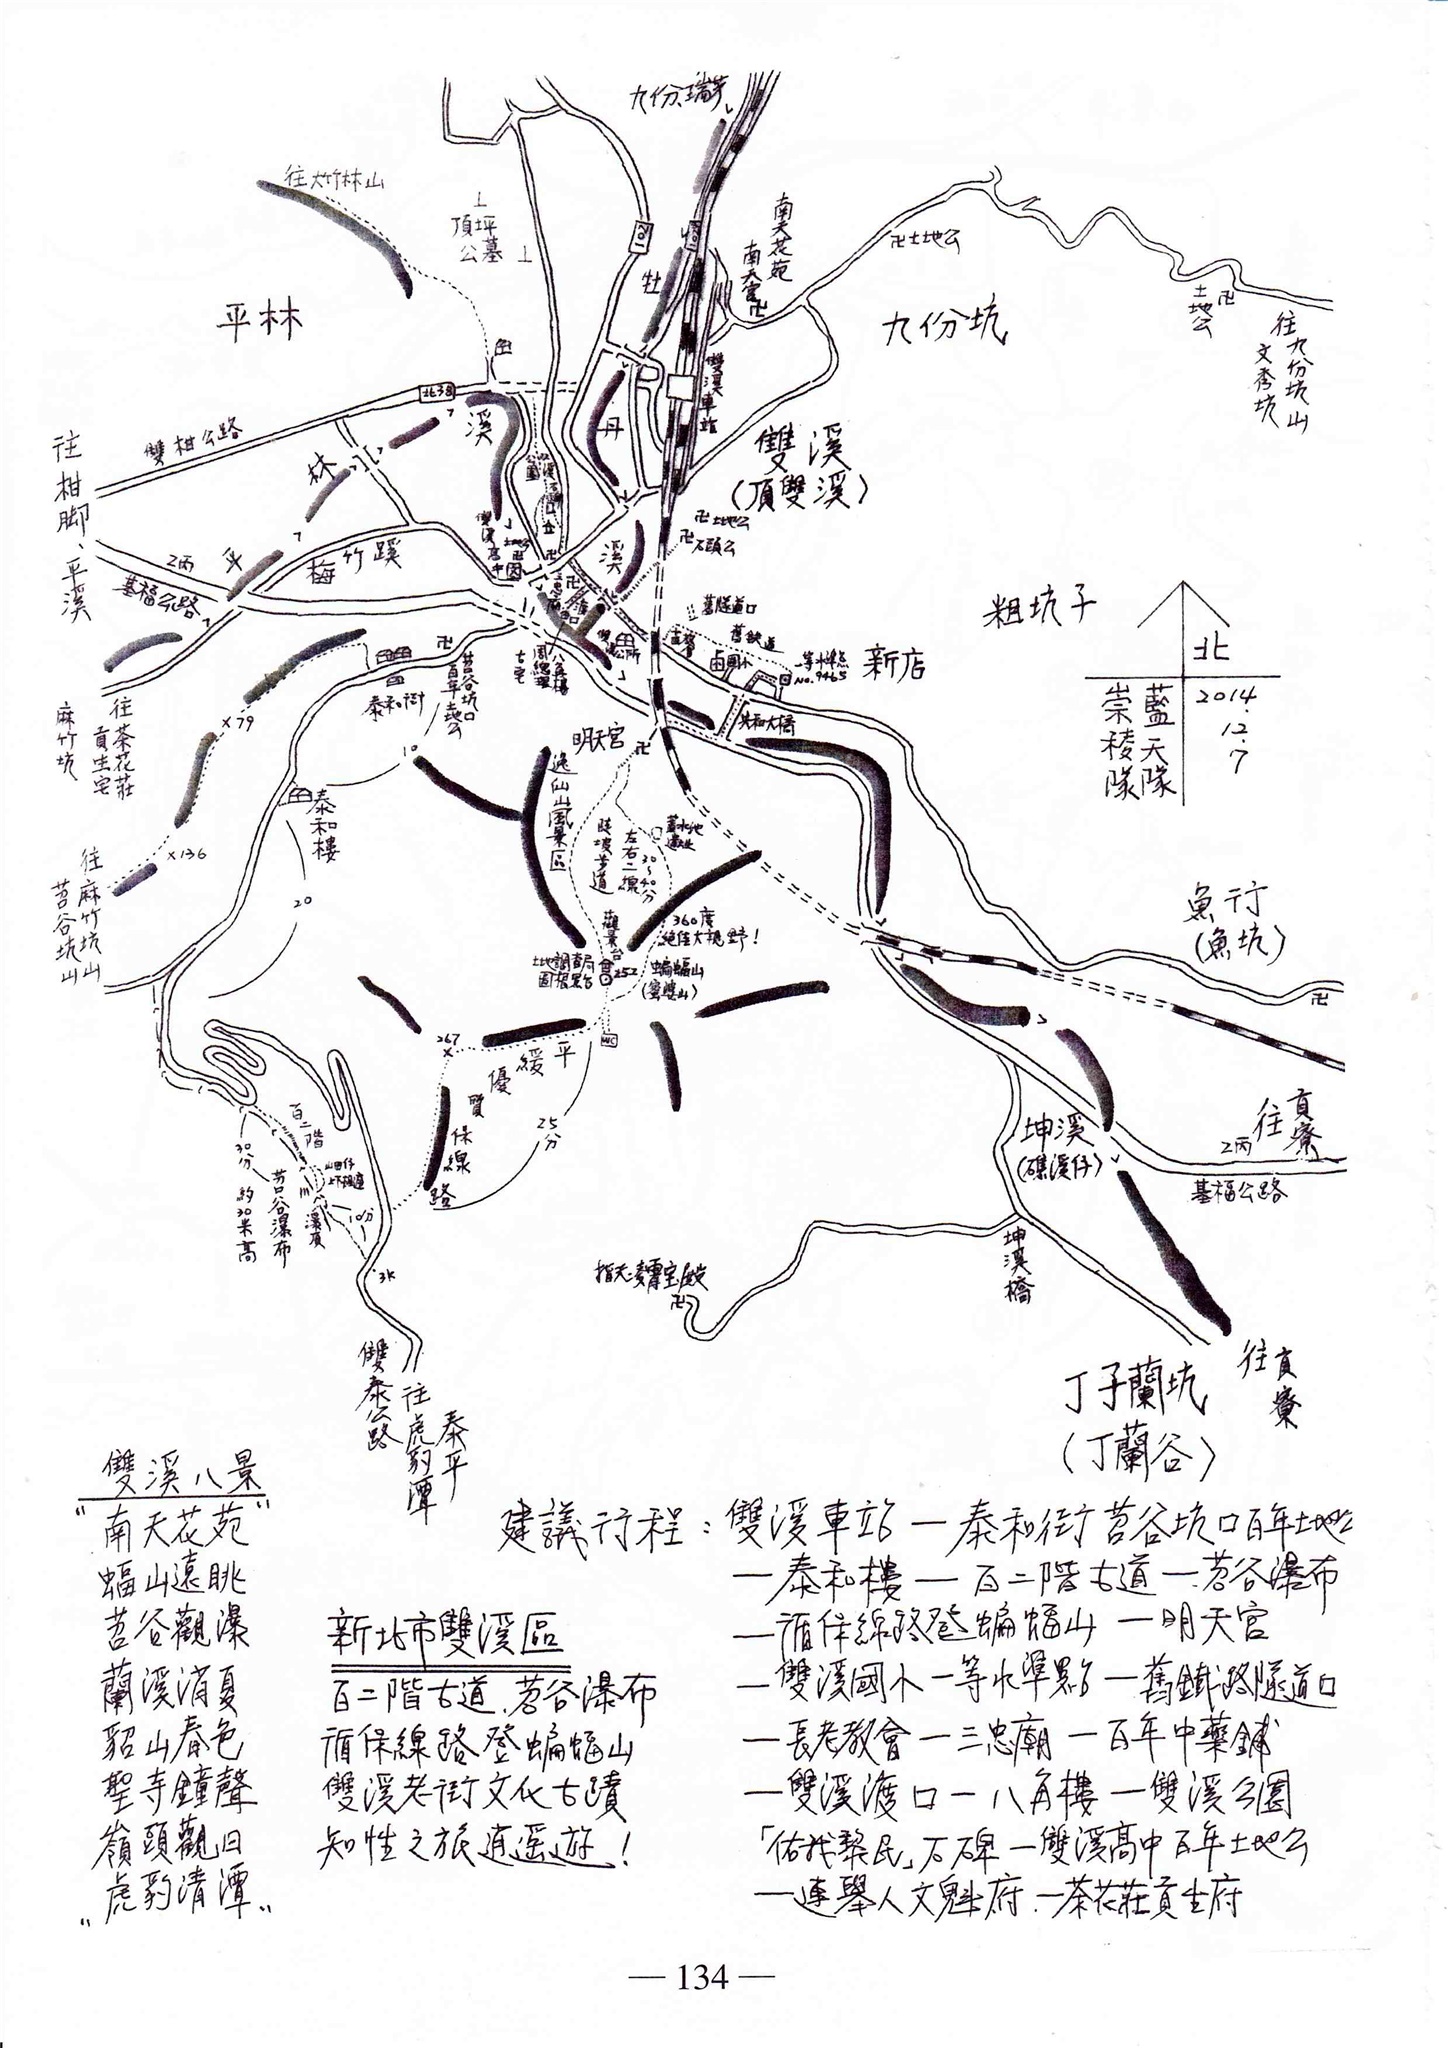 九份、瑞芳
往大竹林山
頂坪
公墓
102
牡
南天花苑
南天宮
卍土地公
土地公
卍
往九份坑山
文秀坑
平林
九份坑
北38
雙柑公路
往柑腳、平溪
溪
林
平
丹
溪
雙溪車站
雙溪
(頂雙溪)
卍土地公
卍石頭公
2丙
基福公路
梅竹蹊
雙溪高中
舊隧道口
舊鐵道
國小
一等水準點
No.9465
新店
粗坑子
北
2014.12.7
藍天隊
崇稜隊
周總理
古宅
八角樓
共和大橋
泰和街
苕谷坑口
百年土地公
往茶花莊
貢生宅
麻竹坑
x79
x136
10
明天宮
卍
逸仙山風景區
陡坡步道
左右二線
30~40分
蓄水池
遺址
泰和樓
20
往麻竹坑山
苕谷坑山
觀景台
360度
絕佳大視野!
土地調查局
圖根點台
252
蝙蝠山
(蜜婆山)
WC
267
x
平緩優質保線路
25分
魚行
(魚坑)
卍
往貢寮
2丙
基福公路
坤溪
(礁溪仔)
坤溪橋
百二階
30分
約30米高
苕谷瀑布
瀑頂
10分
3K
指天凌霄宝殿
卍
雙泰公路
往虎豹潭
泰平
丁子蘭坑
(丁蘭谷)
往貢寮
雙溪八景
"南天花苑"
蝠山遠眺
苕谷觀瀑
蘭溪消夏
貂山春色
聖寺鐘聲
嶺頭觀日
"虎豹清潭"
新北市雙溪區
百二階古道、苕谷瀑布
循保線路登蝙蝠山
雙溪老街文化古蹟
知性之旅逍遥遊!
建議行程:雙溪車站—泰和街苕谷坑口百年土地公
—泰和樓—百二階古道—苕谷瀑布
—循保線路登蝙蝠山—明天宮
—雙溪國小一等水準點—舊鐵路隧道口
—長老教會—三忠廟—百年中藥鋪
—雙溪渡口—八角樓—雙溪公園
「佑我黎民」石碑—雙溪高中百年土地公
—連舉人文魁府—茶花莊貢生府
— 134 —